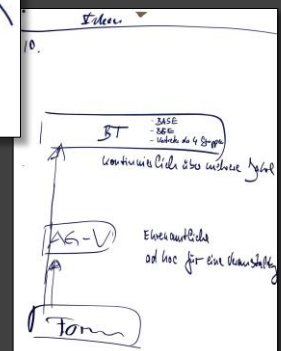 10.
BT
- BASE
- BGE
- Vertreter der 4 Gruppen
kontinuierlich über mehrere Jahre
AG-V
Ehrenamtliche
ad hoc für eine Veranstaltung
Forum